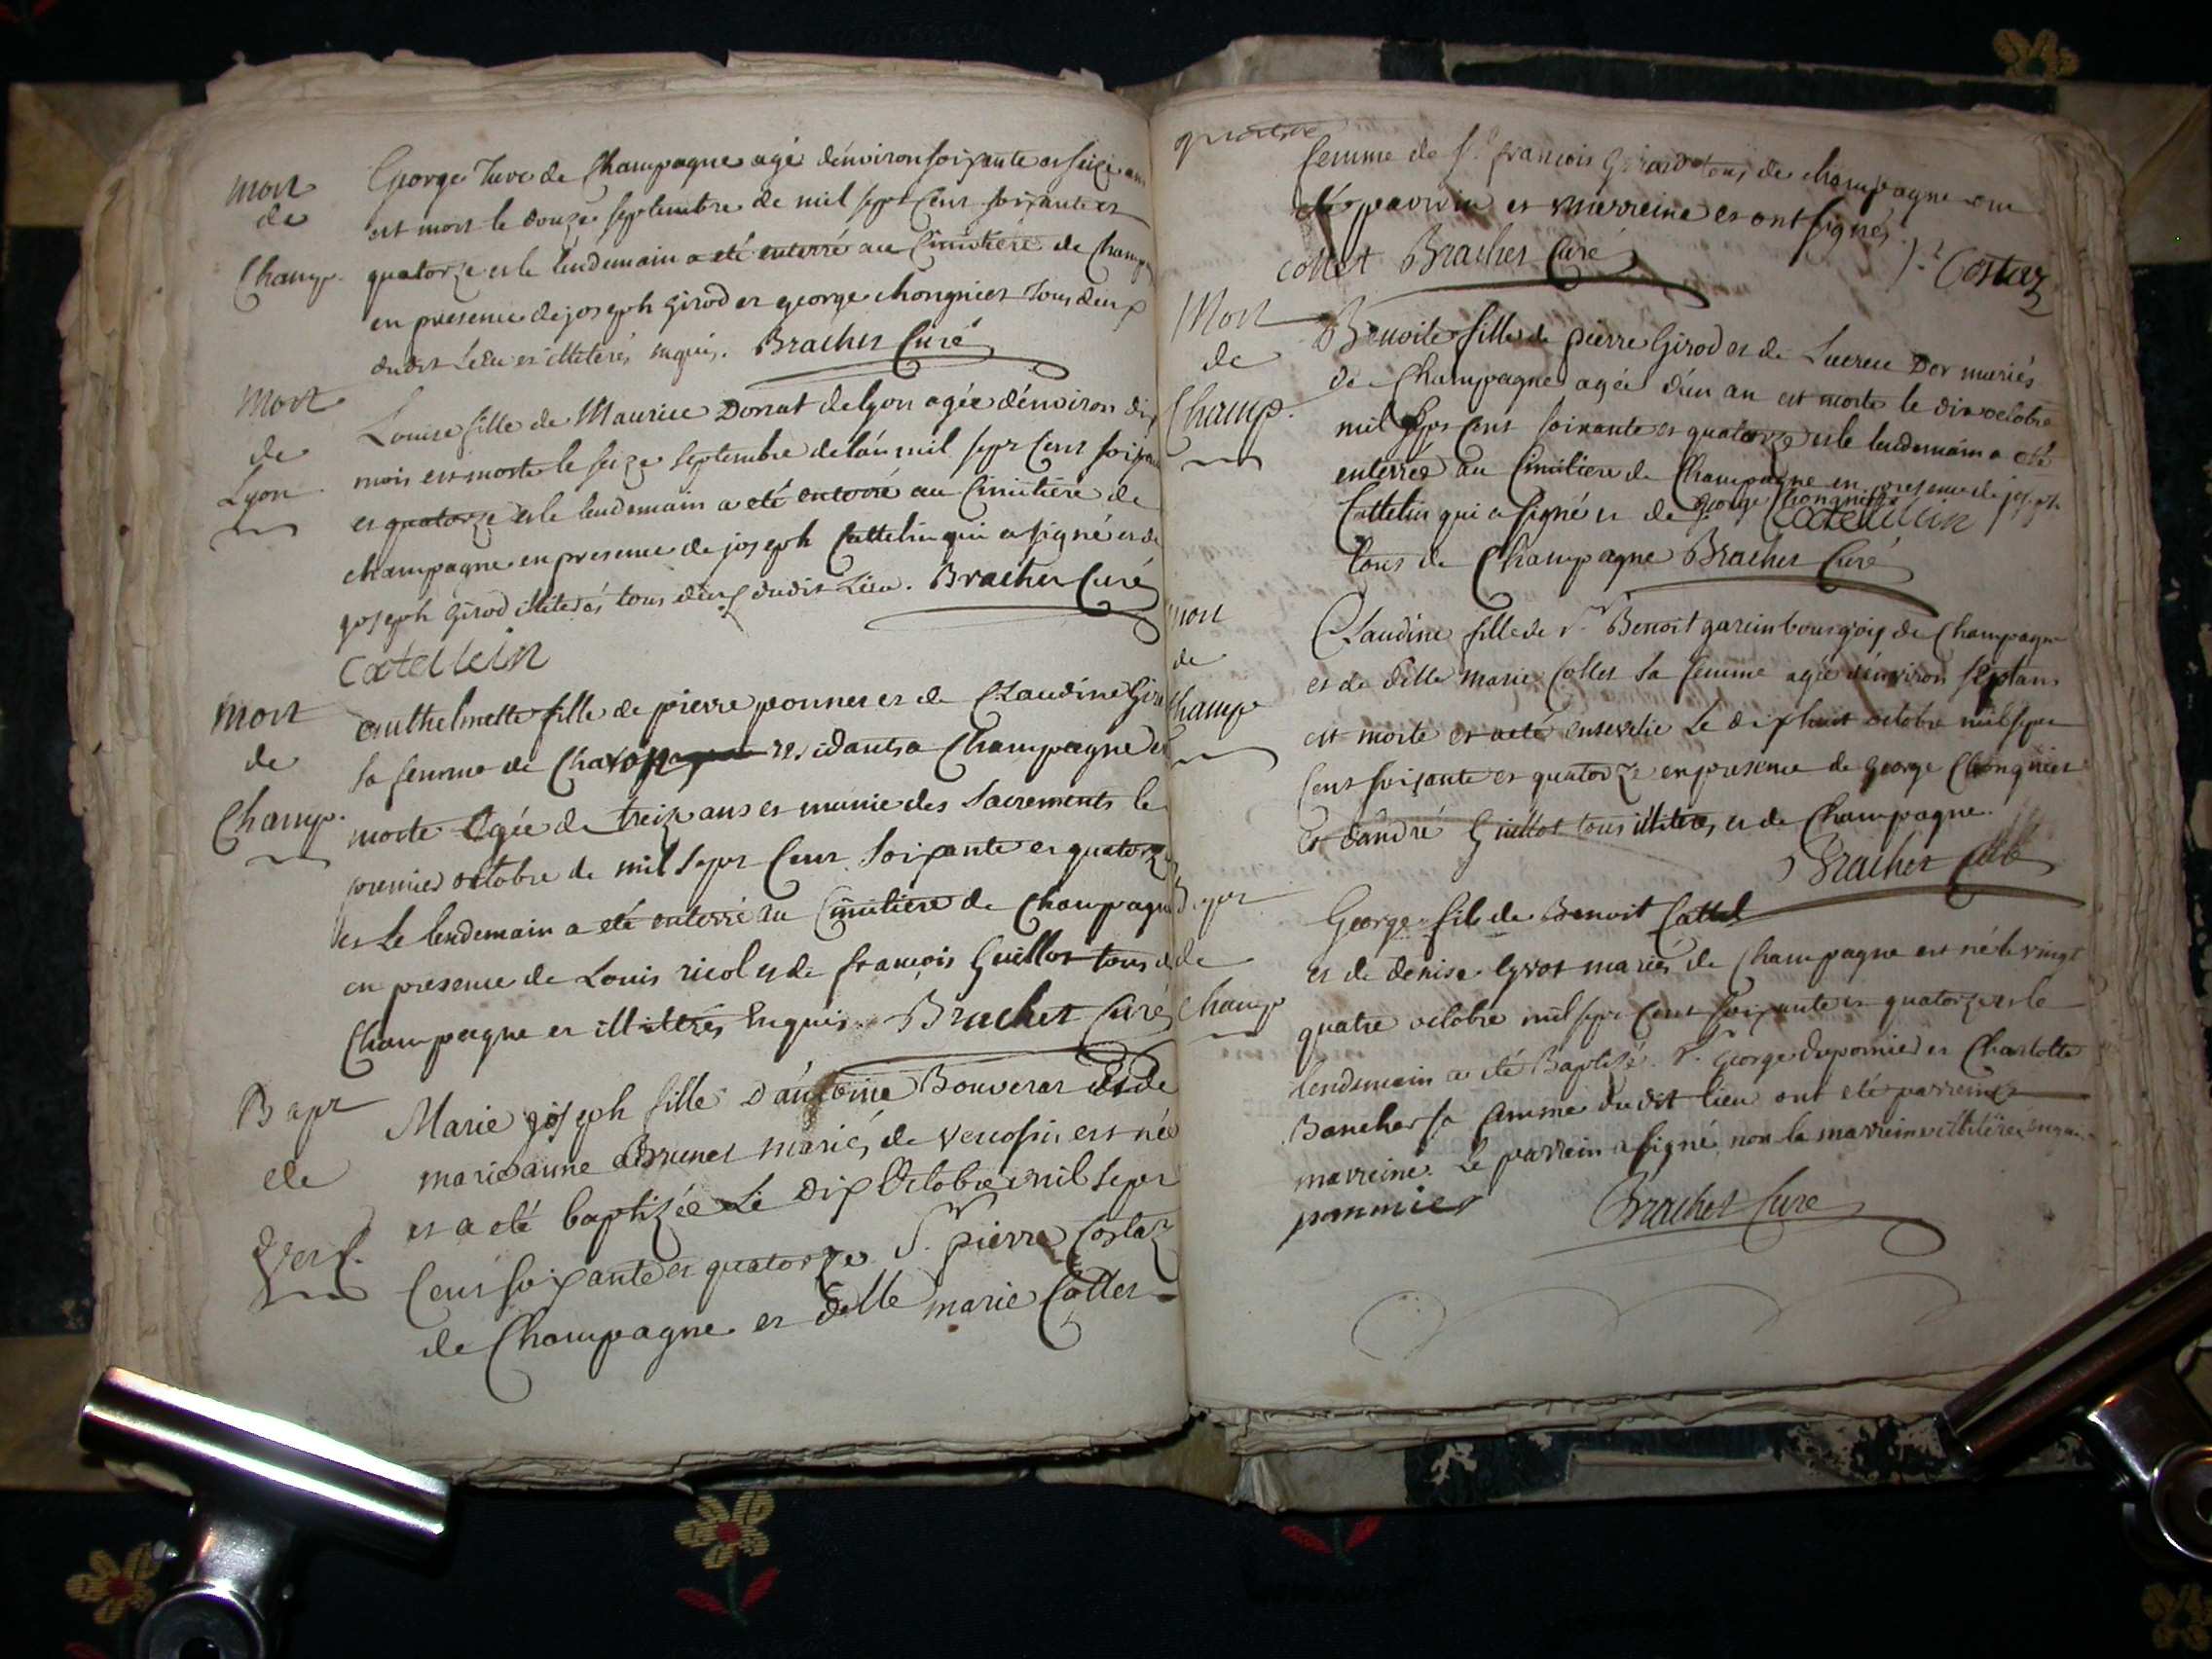 Mort
de
Champ.
George Juve de Champagne agé d'environ soixante et seize ans
est mort le douze septembre de mil sept cent soixante et
quatorze et le lendemain a eté enterré au Cimetière de Champ
en presence de joseph Girod et george chongnier tous deux
dudit Lieu et illiterés enquis. Brachet Curé
Mort
de
Lyon
Louise fille de Maurice Donat de lyon agée d'environ dix
mois est morte le seize septembre de l'an mil sept cent soixante
et quatorze et le lendemain a eté enterré au Cimetière de
champagne en presence de joseph Cattelin qui a signé et de
joseph Girod illiterés tous deux dudit Lieu. Brachet Curé
Catellein
Mort
de
Champ.
anthelmette fille de pierre ponnet et de Claudine
sa femme de residants a Champagne est
morte Agée de treize ans et munie des Sacrements le
premier octobre de mil sept Cent Soixante et quatorze
et Le lendemain a eté enterré au Cimetière de Champagne
en presence de Louis ricol et de françois Guillot tous de
Champagne et illiterés Enquis. Brachet Curé
Bapt
de
Marie joseph fille D'antoine Bouverat et de
marie anne Brunet mariés de est née
et a eté baptizée Le dix Octobre mil sept
Cent soixante et quatorze. Sr. pierre Costaz
de Champagne et delle marie Collet
femme de Sr. françois tous de champagne ont
eté parrein et marreine et ont signés
collet Brachet Curé Costaz
Mort
de
Champ.
Benoite fille de pierre Girod et de Lucrece Dor mariés
de Champagne agée d'un an est morte le dix octobre
mil sept cent soixante et quatorze et le lendemain a eté
enterrée au Cimetiere de Champagne en presence de joseph
Cattelin qui a signé et de george Chongnier Catellein
tous de Champagne Brachet Curé
mort
de
Champ
Claudine fille de Sr. Benoit garin bourgois de Champagne
et de delle marie Collet sa femme agée d'environ sept ans
est morte et a eté ensevelie Le dix huit octobre mil sept
Cent soixante et quatorze en presence de george Chongnier
et d'andré Guillot tous illiterés et de Champagne.
Brachet Curé
Bapt
de
Champ
George fils de Benoit Cattel
et de denise lyvot mariés de Champagne est né le vingt
quatre octobre mil sept Cent soixante et quatorze et le
lendemain a eté Baptisé. Sr. George dupomier et Charlotte
Bancher sa femme dudit lieu ont eté parrein et
marreine. Le parrein a signé, non la marreine illiterée enquise
pommier Brachet Curé